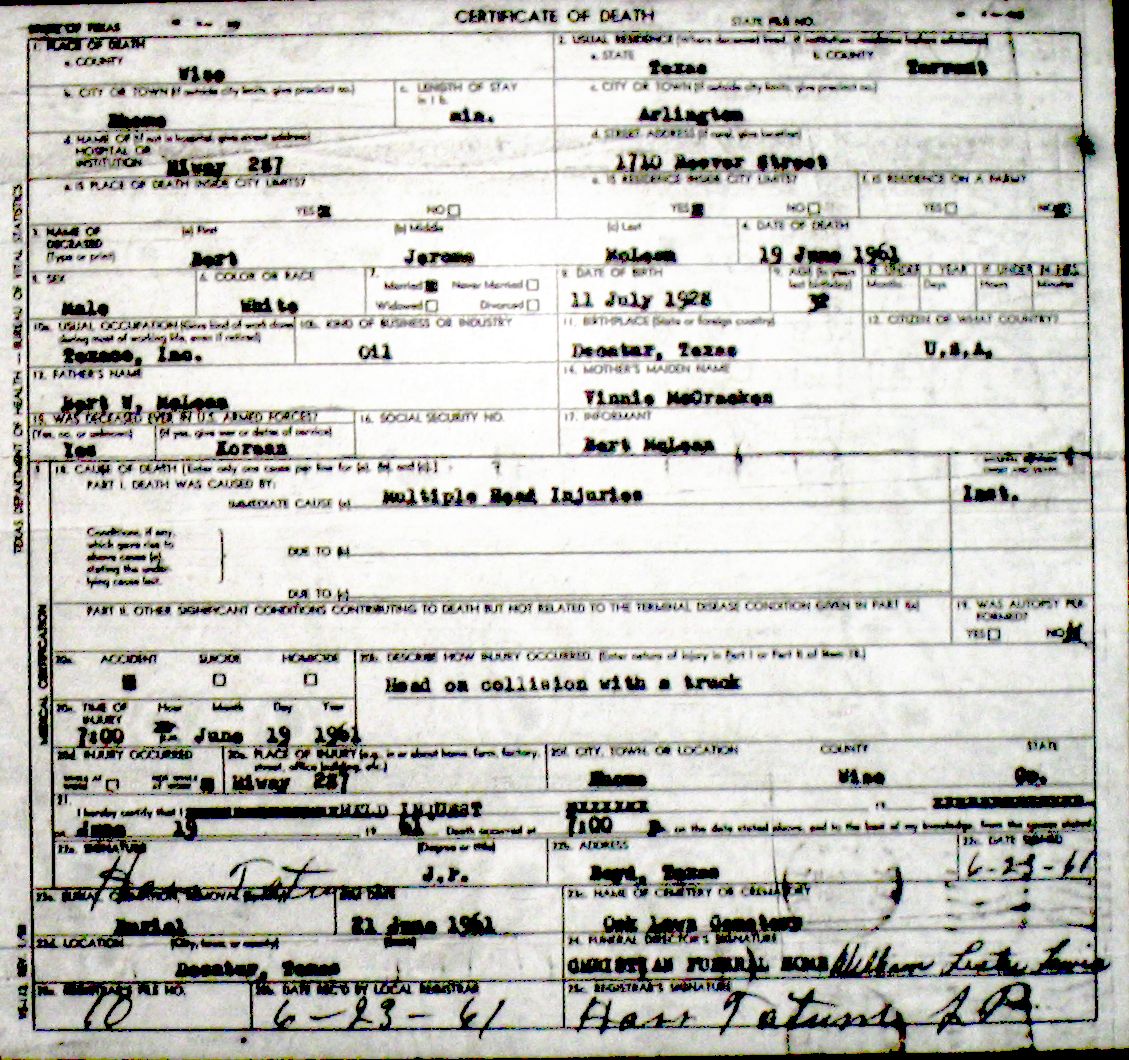 CERTIFICATE OF DEATH
STATE FILE NO.
1. PLACE OF DEATH
a. COUNTY
Wise
2. USUAL RESIDENCE (Where deceased lived. If institution: residence before admission)
a. STATE
Texas
b. COUNTY
Tarrant
b. CITY OR TOWN (If outside city limits, give precinct no.)
Rhome
c. LENGTH OF STAY in 1 b.
min.
c. CITY OR TOWN (If outside city limits, give precinct no.)
Arlington
d. NAME OF (If not in hospital, give street address)
HOSPITAL OR
INSTITUTION
Hiway 287
d. STREET ADDRESS (If rural, give location)
1710 Hoover Street
e. IS PLACE OF DEATH INSIDE CITY LIMITS?
YES NO
e. IS RESIDENCE INSIDE CITY LIMITS?
YES NO
f. IS RESIDENCE ON A FARM?
YES NO
3. NAME OF DECEASED
(Type or print)
(a) First
Bert
(b) Middle
Jerome
(c) Last
McLean
4. DATE OF DEATH
19 June 1961
5. SEX
Male
6. COLOR OR RACE
White
7.
Married Never Married
Widowed Divorced
8. DATE OF BIRTH
11 July 1928
9. AGE (In years last birthday)
32
IF UNDER 1 YEAR
Months Days
IF UNDER 24 HRS.
Hours Minutes
10a. USUAL OCCUPATION (Give kind of work done during most of working life, even if retired)
Texaco, Inc.
10b. KIND OF BUSINESS OR INDUSTRY
Oil
11. BIRTHPLACE (State or foreign country)
Decatur, Texas
12. CITIZEN OF WHAT COUNTRY?
U.S.A.
13. FATHER'S NAME
Bert W. McLean
14. MOTHER'S MAIDEN NAME
Vinnie McCracken
15. WAS DECEASED EVER IN U.S. ARMED FORCES?
(Yes, no, or unknown)
Yes
(If yes, give war or dates of service)
Korean
16. SOCIAL SECURITY NO.
17. INFORMANT
Bert McLean
18. CAUSE OF DEATH [Enter only one cause per line for (a), (b), and (c).]
PART I. DEATH WAS CAUSED BY:
IMMEDIATE CAUSE (a)
Multiple Head Injuries
Inst.
Conditions, if any,
which gave rise to
above cause (a),
stating the under-
lying cause last.
DUE TO (b)
DUE TO (c)
PART II. OTHER SIGNIFICANT CONDITIONS CONTRIBUTING TO DEATH BUT NOT RELATED TO THE TERMINAL DISEASE CONDITION GIVEN IN PART I(a)
19. WAS AUTOPSY PERFORMED?
YES NO
20a. ACCIDENT SUICIDE HOMICIDE
20b. DESCRIBE HOW INJURY OCCURRED. (Enter nature of injury in Part I or Part II of Item 18.)
Head on collision with a truck
20c. TIME OF INJURY
Hour Month Day Year
7:00 June 19 1961
20d. INJURY OCCURRED
20e. PLACE OF INJURY (e.g., in or about home, farm, factory, street, office building, etc.)
Hiway 287
20f. CITY, TOWN, OR LOCATION COUNTY STATE
Rhome Wise Co.
21.
I hereby certify that I HELD INQUEST
June 19 19 61 Death occurred at 7:00 p. on the date stated above, and to the best of my knowledge, from the causes stated
22a. SIGNATURE (Degree or title)
Tatum J.P.
22b. ADDRESS
Boyd, Texas
22c. DATE SIGNED
6-23-61
23a. BURIAL, CREMATION, REMOVAL
Burial
23b. DATE
21 June 1961
23c. NAME OF CEMETERY OR CREMATORY
Oak Lawn Cemetery
23d. LOCATION (City, town, or county) (State)
Decatur, Texas
24. FUNERAL DIRECTOR'S SIGNATURE
CHRISTIAN FUNERAL HOME
25a. REGISTRAR'S FILE NO.
10
25b. DATE REC'D BY LOCAL REGISTRAR
6-23-61
25c. REGISTRAR'S SIGNATURE
Tatum
TEXAS DEPARTMENT OF HEALTH — BUREAU OF VITAL STATISTICS
MEDICAL CERTIFICATION